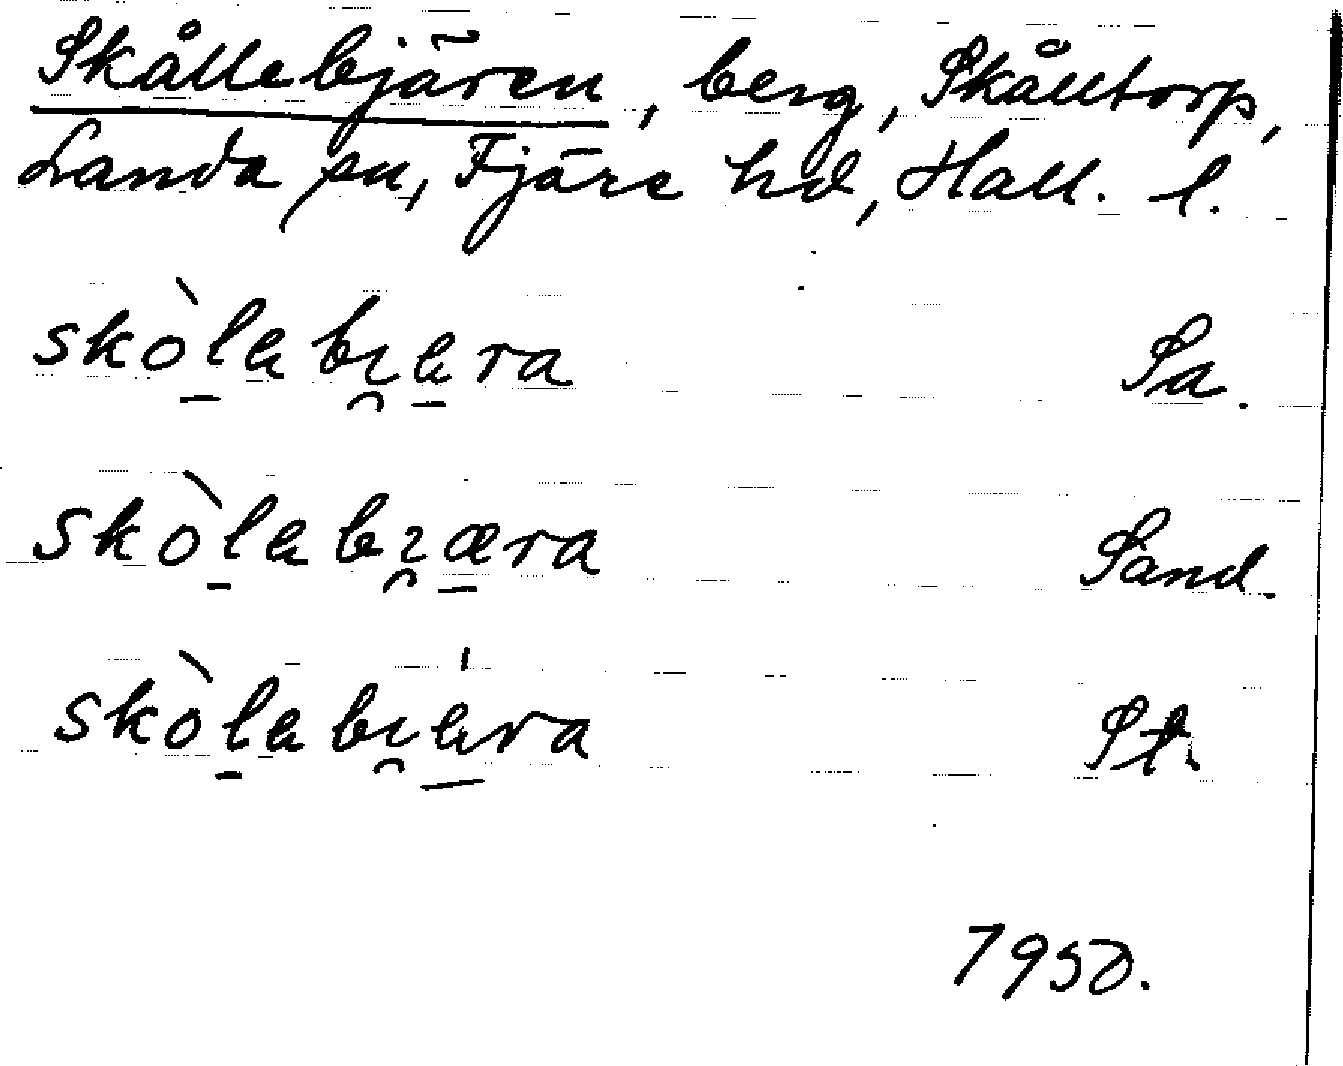 Skållebjären, berg, Skålltorp,
Landa sn, Fjäre hd, Hall. l.
skòlabı̯ara Sa.
skòlabı̯æra Sand.
skòlabı̯ára St.
1950.